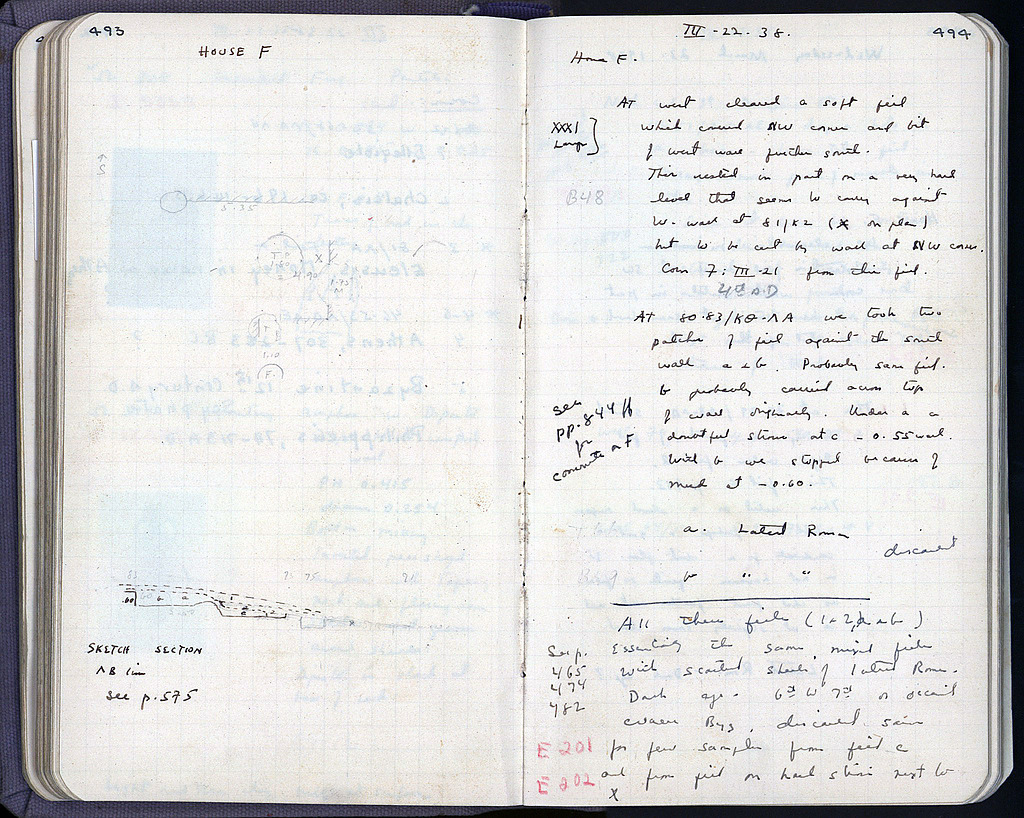 493
HOUSE F
S
5.35
4.90
1.10
F
.60
SKETCH SECTION
ΛB line
see p.575
III-22-38.
494
House F.
At west cleared a soft fill
XXXI
Large
which covered NW corner and bit
of west wall further south.
This rested in part on a very hard
B48
level that seems to carry against
W. wall at 81/KZ (X on plan)
but to be cut by wall at NW corner.
Coin 7: III-21 from this fill.
4th A.D
At 80-83/KΘ-ΛA we took two
patches of fill against the south
wall a & b. Probably same fill.
b probably carried across top
see
pp. 844 ff
for
comments on F
of wall originally. Under a a
doubtful stereo at c -0.55 wall.
With b we stopped because of
mud at -0.60.
a. Latest Roman
discarded
b " "
All these fills (1+2, a+b)
See p.
465
474
482
Essentially the same, mixed fills
with scattered sherds of latest Roman.
Dark age - 6th to 7th or occasional
Byz, discarded save
E 201
for few samples from fill c
E 202
and from fill on hard stereo next to
X